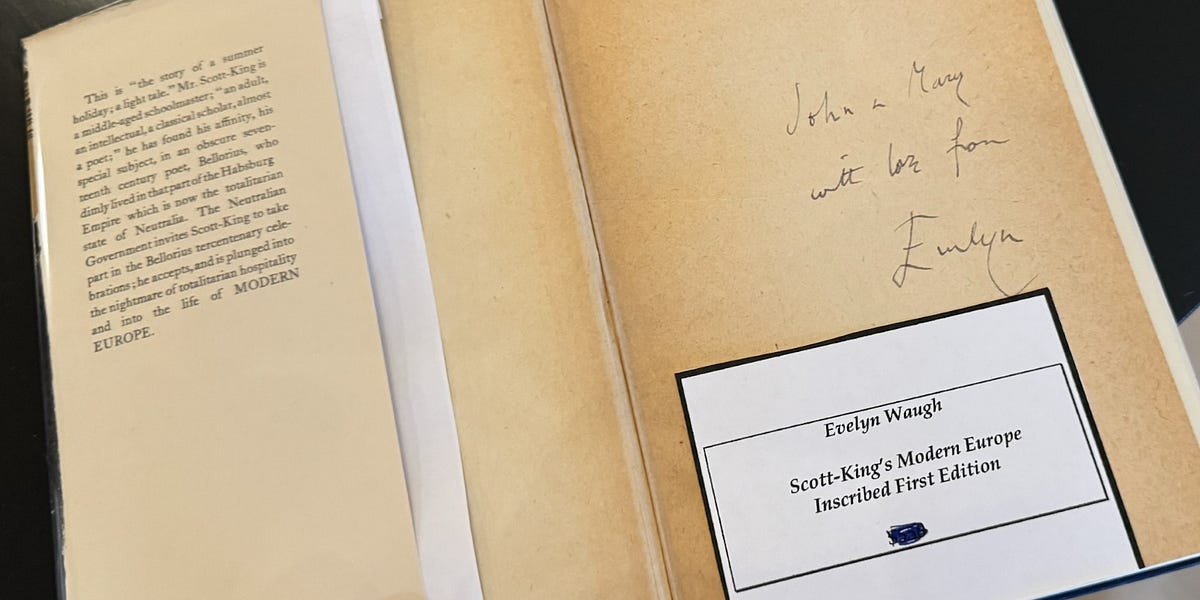 This is "the story of a summer
holiday; a light tale." Mr. Scott-King is
a middle-aged schoolmaster; "an adult,
an intellectual, a classical scholar, almost
a poet;" he has found his affinity, his
special subject, in an obscure seven-
teenth century poet, Bellorius, who
dimly lived in that part of the Habsburg
Empire which is now the totalitarian
state of Neutralia. The Neutralian
Government invites Scott-King to take
part in the Bellorius tercentenary cele-
brations; he accepts, and is plunged into
the nightmare of totalitarian hospitality
and into the life of MODERN
EUROPE.
John & Mary
with love from
Evelyn
Evelyn Waugh
Scott-King's Modern Europe
Inscribed First Edition